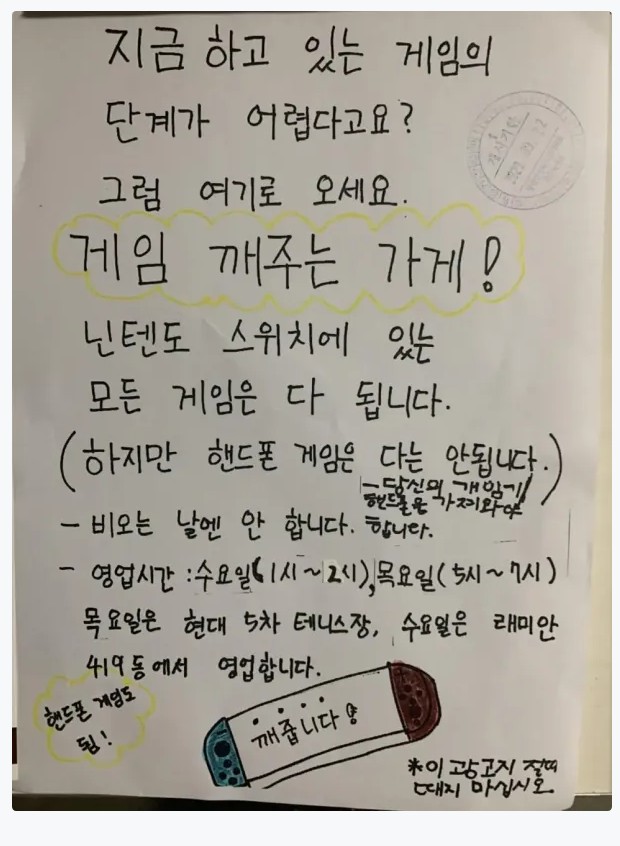 지금 하고 있는 게임의
단계가 어렵다고요?
그럼 여기로 오세요.
게임 깨주는 가게!
닌텐도 스위치에 있는
모든 게임은 다 됩니다.
(하지만 핸드폰 게임은 다는 안됩니다.)
- 당신의 게임기/
핸드폰은 가져와야
합니다.
- 비오는 날엔 안 합니다.
- 영업시간 : 수요일(1시~2시), 목요일(5시~7시)
목요일은 현대 5차 테니스장, 수요일은 래미안
419동에서 영업합니다.
핸드폰 게임도
됨!
깨줍니다!
*이 광고지 절떠
떼지 마십시오